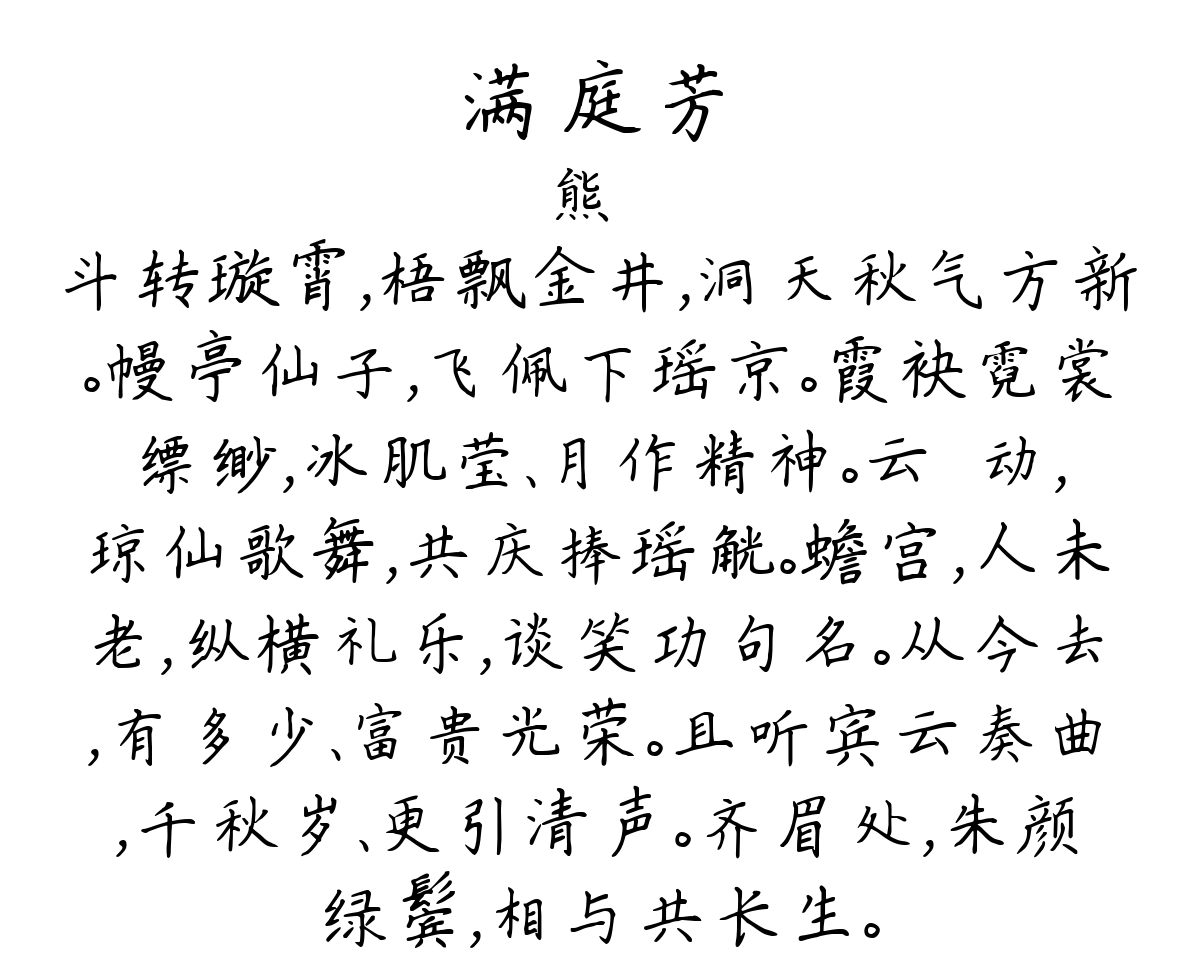 满庭芳
熊
斗转璇霄,梧飘金井,洞天秋气方新
。幔亭仙子,飞佩下瑶京。霞袂霓裳
缥缈,冰肌莹、月作精神。云 动,
琼仙歌舞,共庆捧瑶觥。蟾宫,人未
老,纵横礼乐,谈笑功句名。从今去
,有多少、富贵光荣。且听宾云奏曲
,千秋岁、更引清声。齐眉处,朱颜
绿鬓,相与共长生。